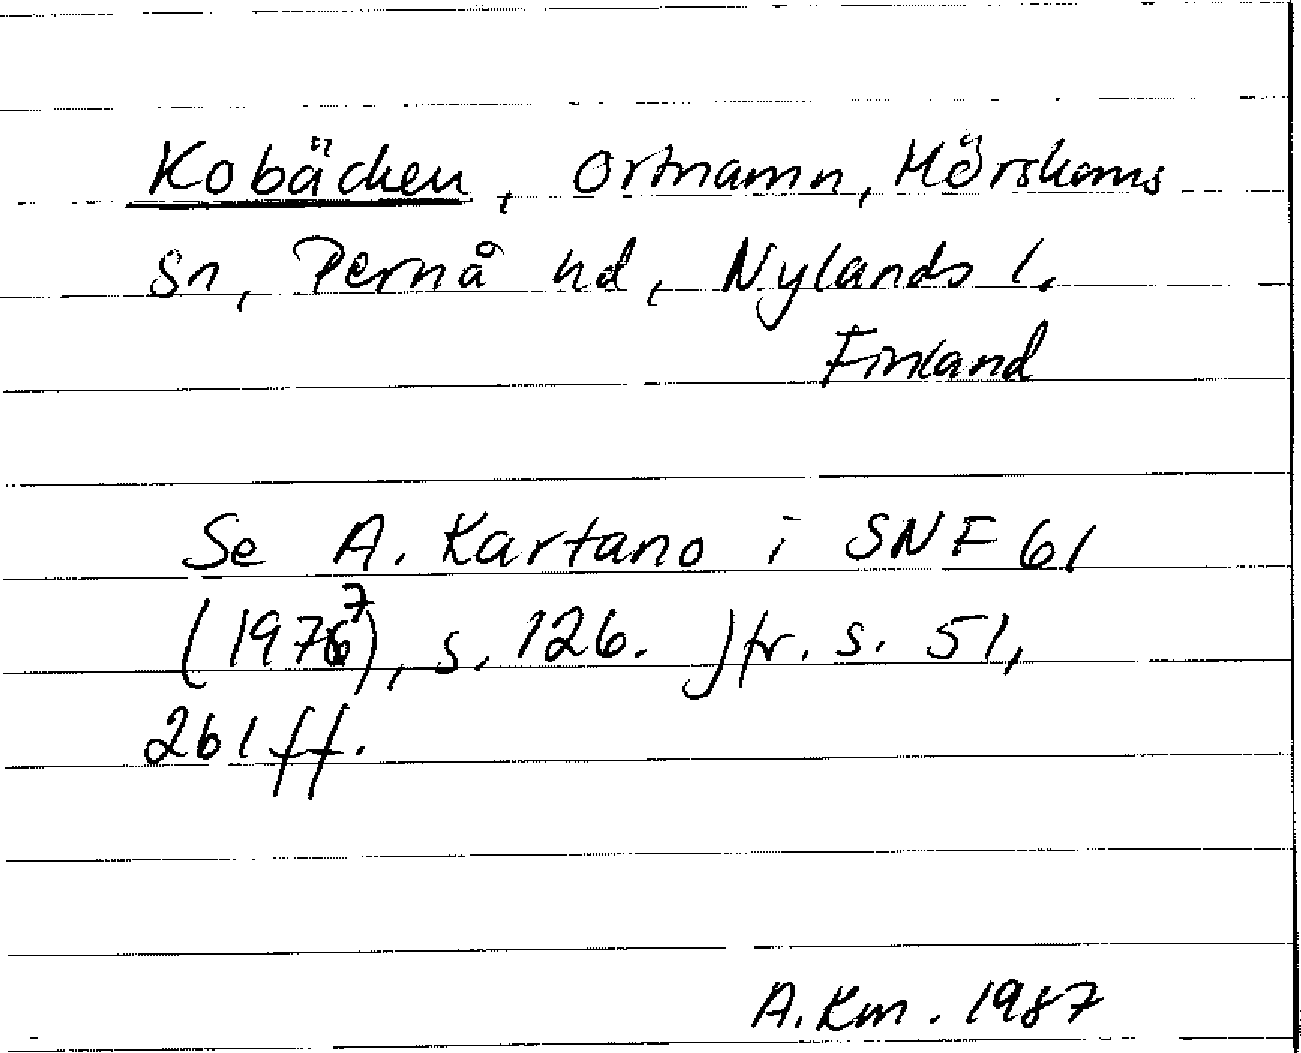 Kobäcken, Ortnamn, Mörskoms
sn, Pernå hd, Nylands l.
Finland
Se A. Kartano i SNF 61
(1977), s. 126. Jfr. s. 51,
261 ff.
A. Km. 1987